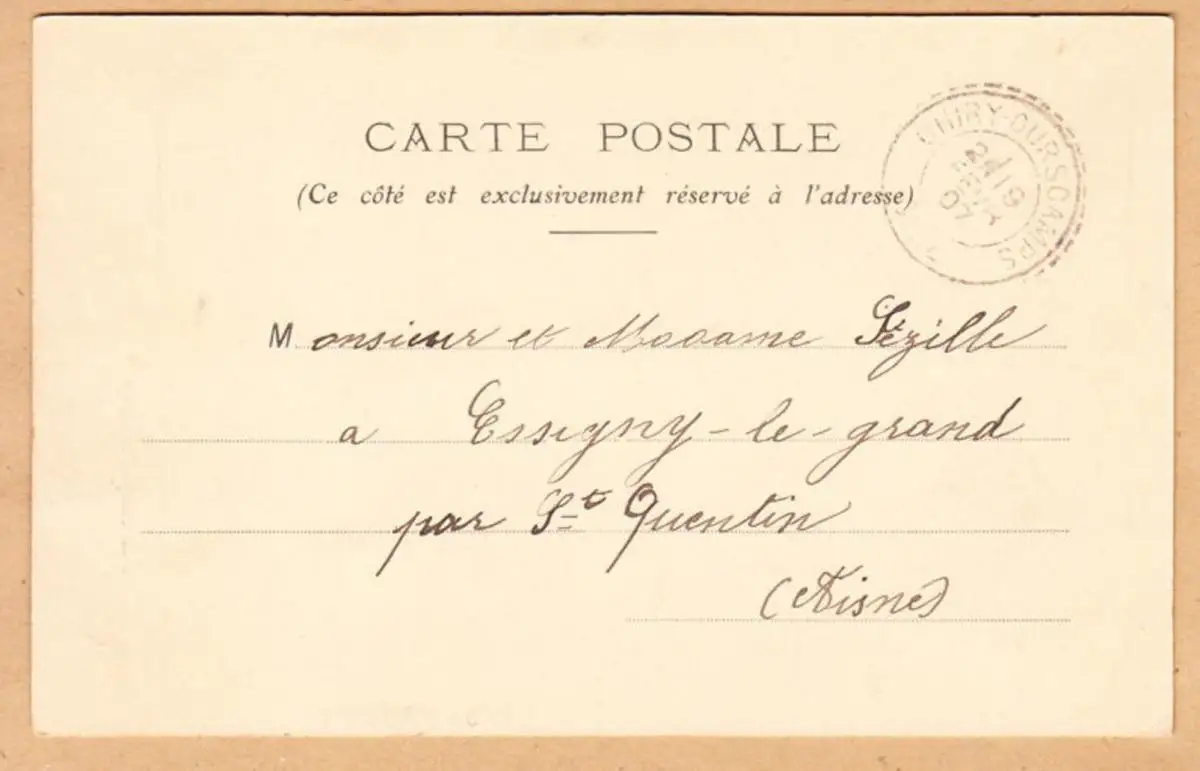 CARTE POSTALE
(Ce côté est exclusivement réservé à l'adresse)
CHIRY-OURSCAMPS
19
07
Monsieur et Madame Sézille
a Essigny-le-grand
par St Quentin
(Aisne)